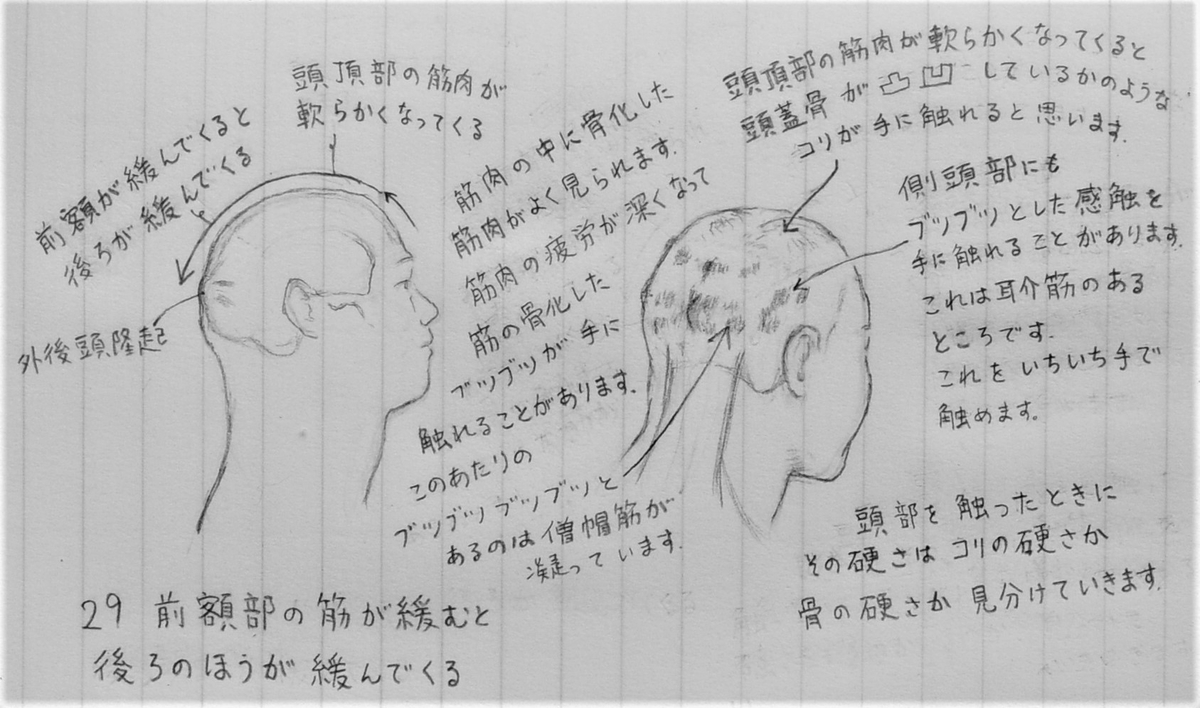 頭頂部の筋肉が
軟らかくなってくる
前額が緩んでくると
後ろが緩んでくる
外後頭隆起
筋肉の中に骨化した
筋肉がよく見られます.
筋肉の疲労が深くなって
筋の骨化した
ブツブツが手に
触れることがあります.
このあたりの
ブツブツブツブツと
あるのは僧帽筋が
凝っています.
頭頂部の筋肉が軟らかくなってくると
頭蓋骨が凸凹しているかのような
コリが手に触れると思います.
側頭部にも
ブツブツとした感触を
手に触れることがあります.
これは耳介筋のある
ところです.
これをいちいち手で
触めます。
頭部を触ったときに
その硬さはコリの硬さか
骨の硬さか見分けていきます.
29 前額部の筋が緩むと
後ろのほうが緩んでくる